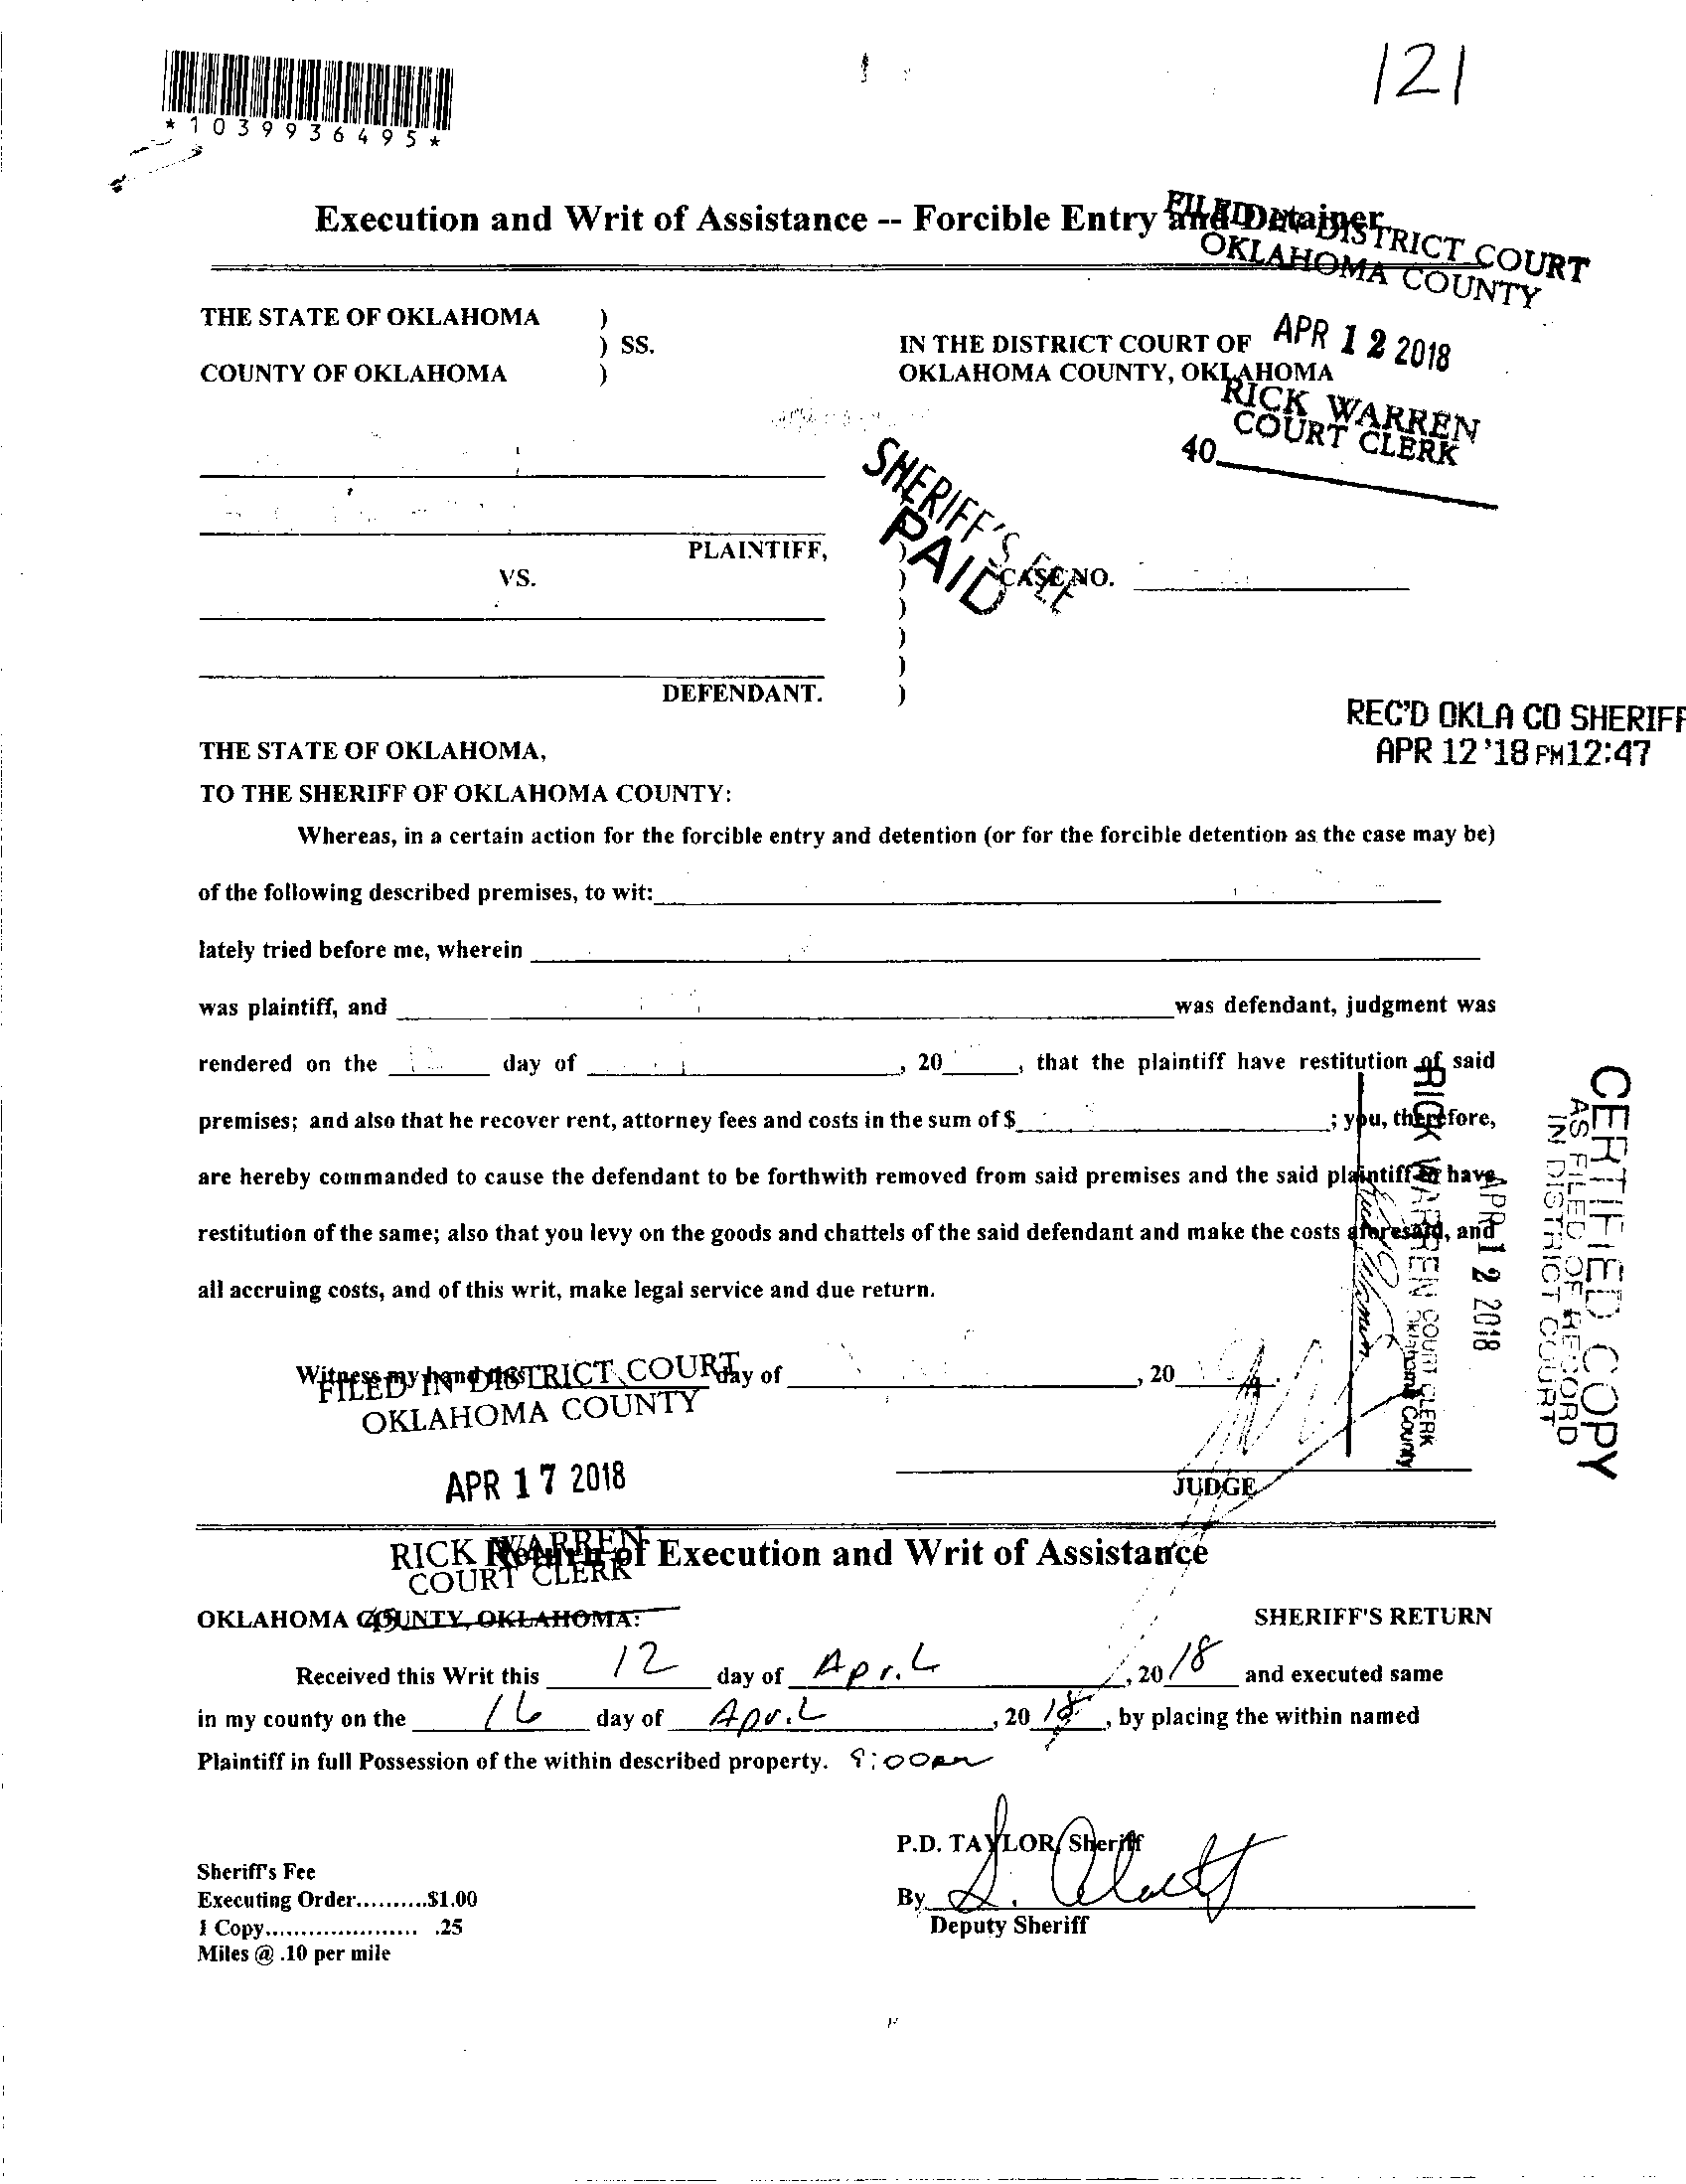 121
*1039936495*
Execution and Writ of Assistance -- Forcible Entry and Detainer
FILED IN DISTRICT COURT
OKLAHOMA COUNTY
THE STATE OF OKLAHOMA )
) SS.
COUNTY OF OKLAHOMA )
IN THE DISTRICT COURT OF
OKLAHOMA COUNTY, OKLAHOMA
APR 12 2018
RICK WARREN
COURT CLERK
40
SHERIFF'S FEE
PAID
PLAINTIFF, )
VS. )
CASE NO.
)
)
)
DEFENDANT. )
REC'D OKLA CO SHERIFF
APR 12 '18 PM12:47
THE STATE OF OKLAHOMA,
TO THE SHERIFF OF OKLAHOMA COUNTY:
Whereas, in a certain action for the forcible entry and detention (or for the forcible detention as the case may be)
of the following described premises, to wit:
lately tried before me, wherein
was plaintiff, and was defendant, judgment was
rendered on the day of , 20 , that the plaintiff have restitution of said
premises; and also that he recover rent, attorney fees and costs in the sum of $ ; you, therefore,
are hereby commanded to cause the defendant to be forthwith removed from said premises and the said plaintiff to have
restitution of the same; also that you levy on the goods and chattels of the said defendant and make the costs aforesaid, and
all accruing costs, and of this writ, make legal service and due return.
CERTIFIED COPY
AS FILED OF RECORD
IN DISTRICT COURT
APR 12 2018
RICK WARREN COURT CLERK
Oklahoma County
Witness my hand this day of , 20
FILED IN DISTRICT COURT
OKLAHOMA COUNTY
APR 17 2018
JUDGE
RICK WARREN
COURT CLERK
Return of Execution and Writ of Assistance
OKLAHOMA COUNTY, OKLAHOMA: SHERIFF'S RETURN
Received this Writ this 12 day of April , 20 18 and executed same
in my county on the 16 day of April , 20 18 , by placing the within named
Plaintiff in full Possession of the within described property. 9:00am
P.D. TAYLOR, Sheriff
Sheriff's Fee
Executing Order..........$1.00
By
1 Copy..................... .25
Deputy Sheriff
Miles @ .10 per mile